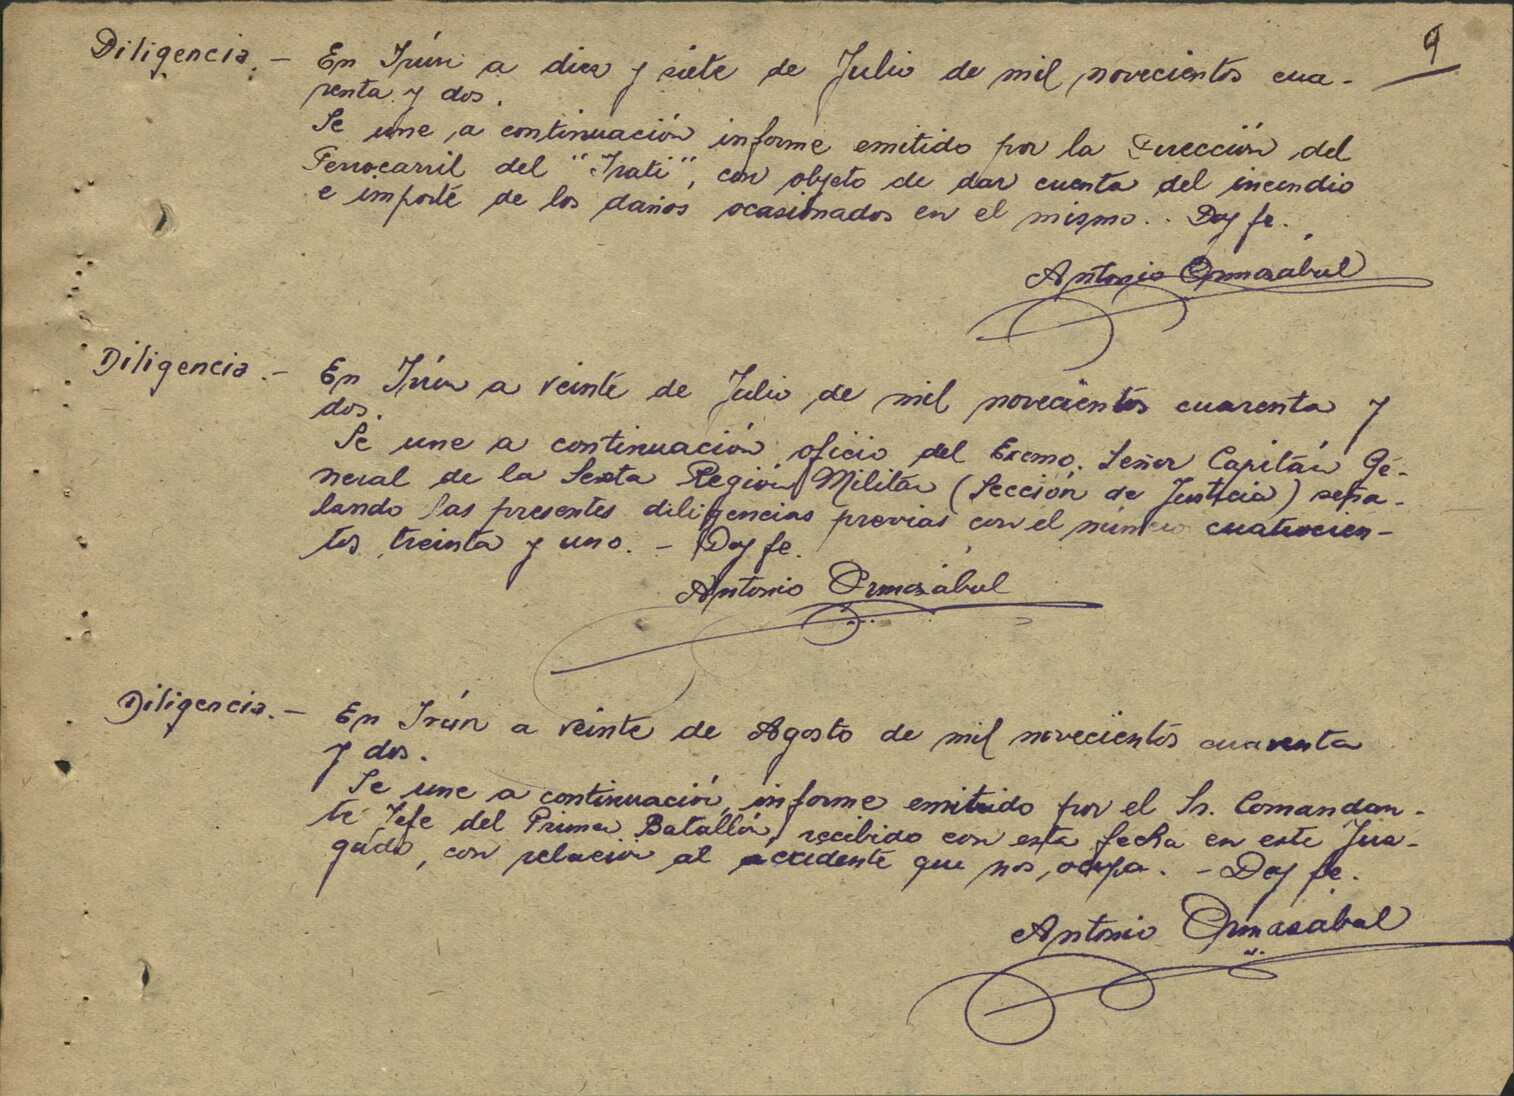 9
Diligencia.- En Irún a diez y siete de Julio de mil novecientos cua-
renta y dos.
Se une a continuación informe emitido por la Dirección del
Ferrocarril del "Irati", con objeto de dar cuenta del incendio
e importe de los daños ocasionados en el mismo.. Doy fe.
Antonio Ormazábal
Diligencia.- En Irún a veinte de Julio de mil novecientos cuarenta y
dos.
Se une a continuación oficio del Excmo. Señor Capitán Ge-
neral de la Sexta Región Militar (Sección de Justicia) seña-
lando las presentes diligencias previas con el número cuatrocien-
tos treinta y uno. - Doy fe.
Antonio Ormazábal
Diligencia.- En Irún a veinte de Agosto de mil novecientos cuarenta
y dos.
Se une a continuación informe emitido por el Sr. Comandan-
te Jefe del Primer Batallón, recibido con esta fecha en este Juz-
gado, con relación al accidente que nos ocupa. - Doy fe.
Antonio Ormazábal